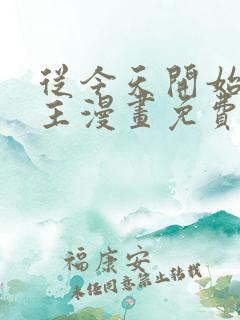 從今天開始
王漫畫免費
福康安
未經同意禁止轉載